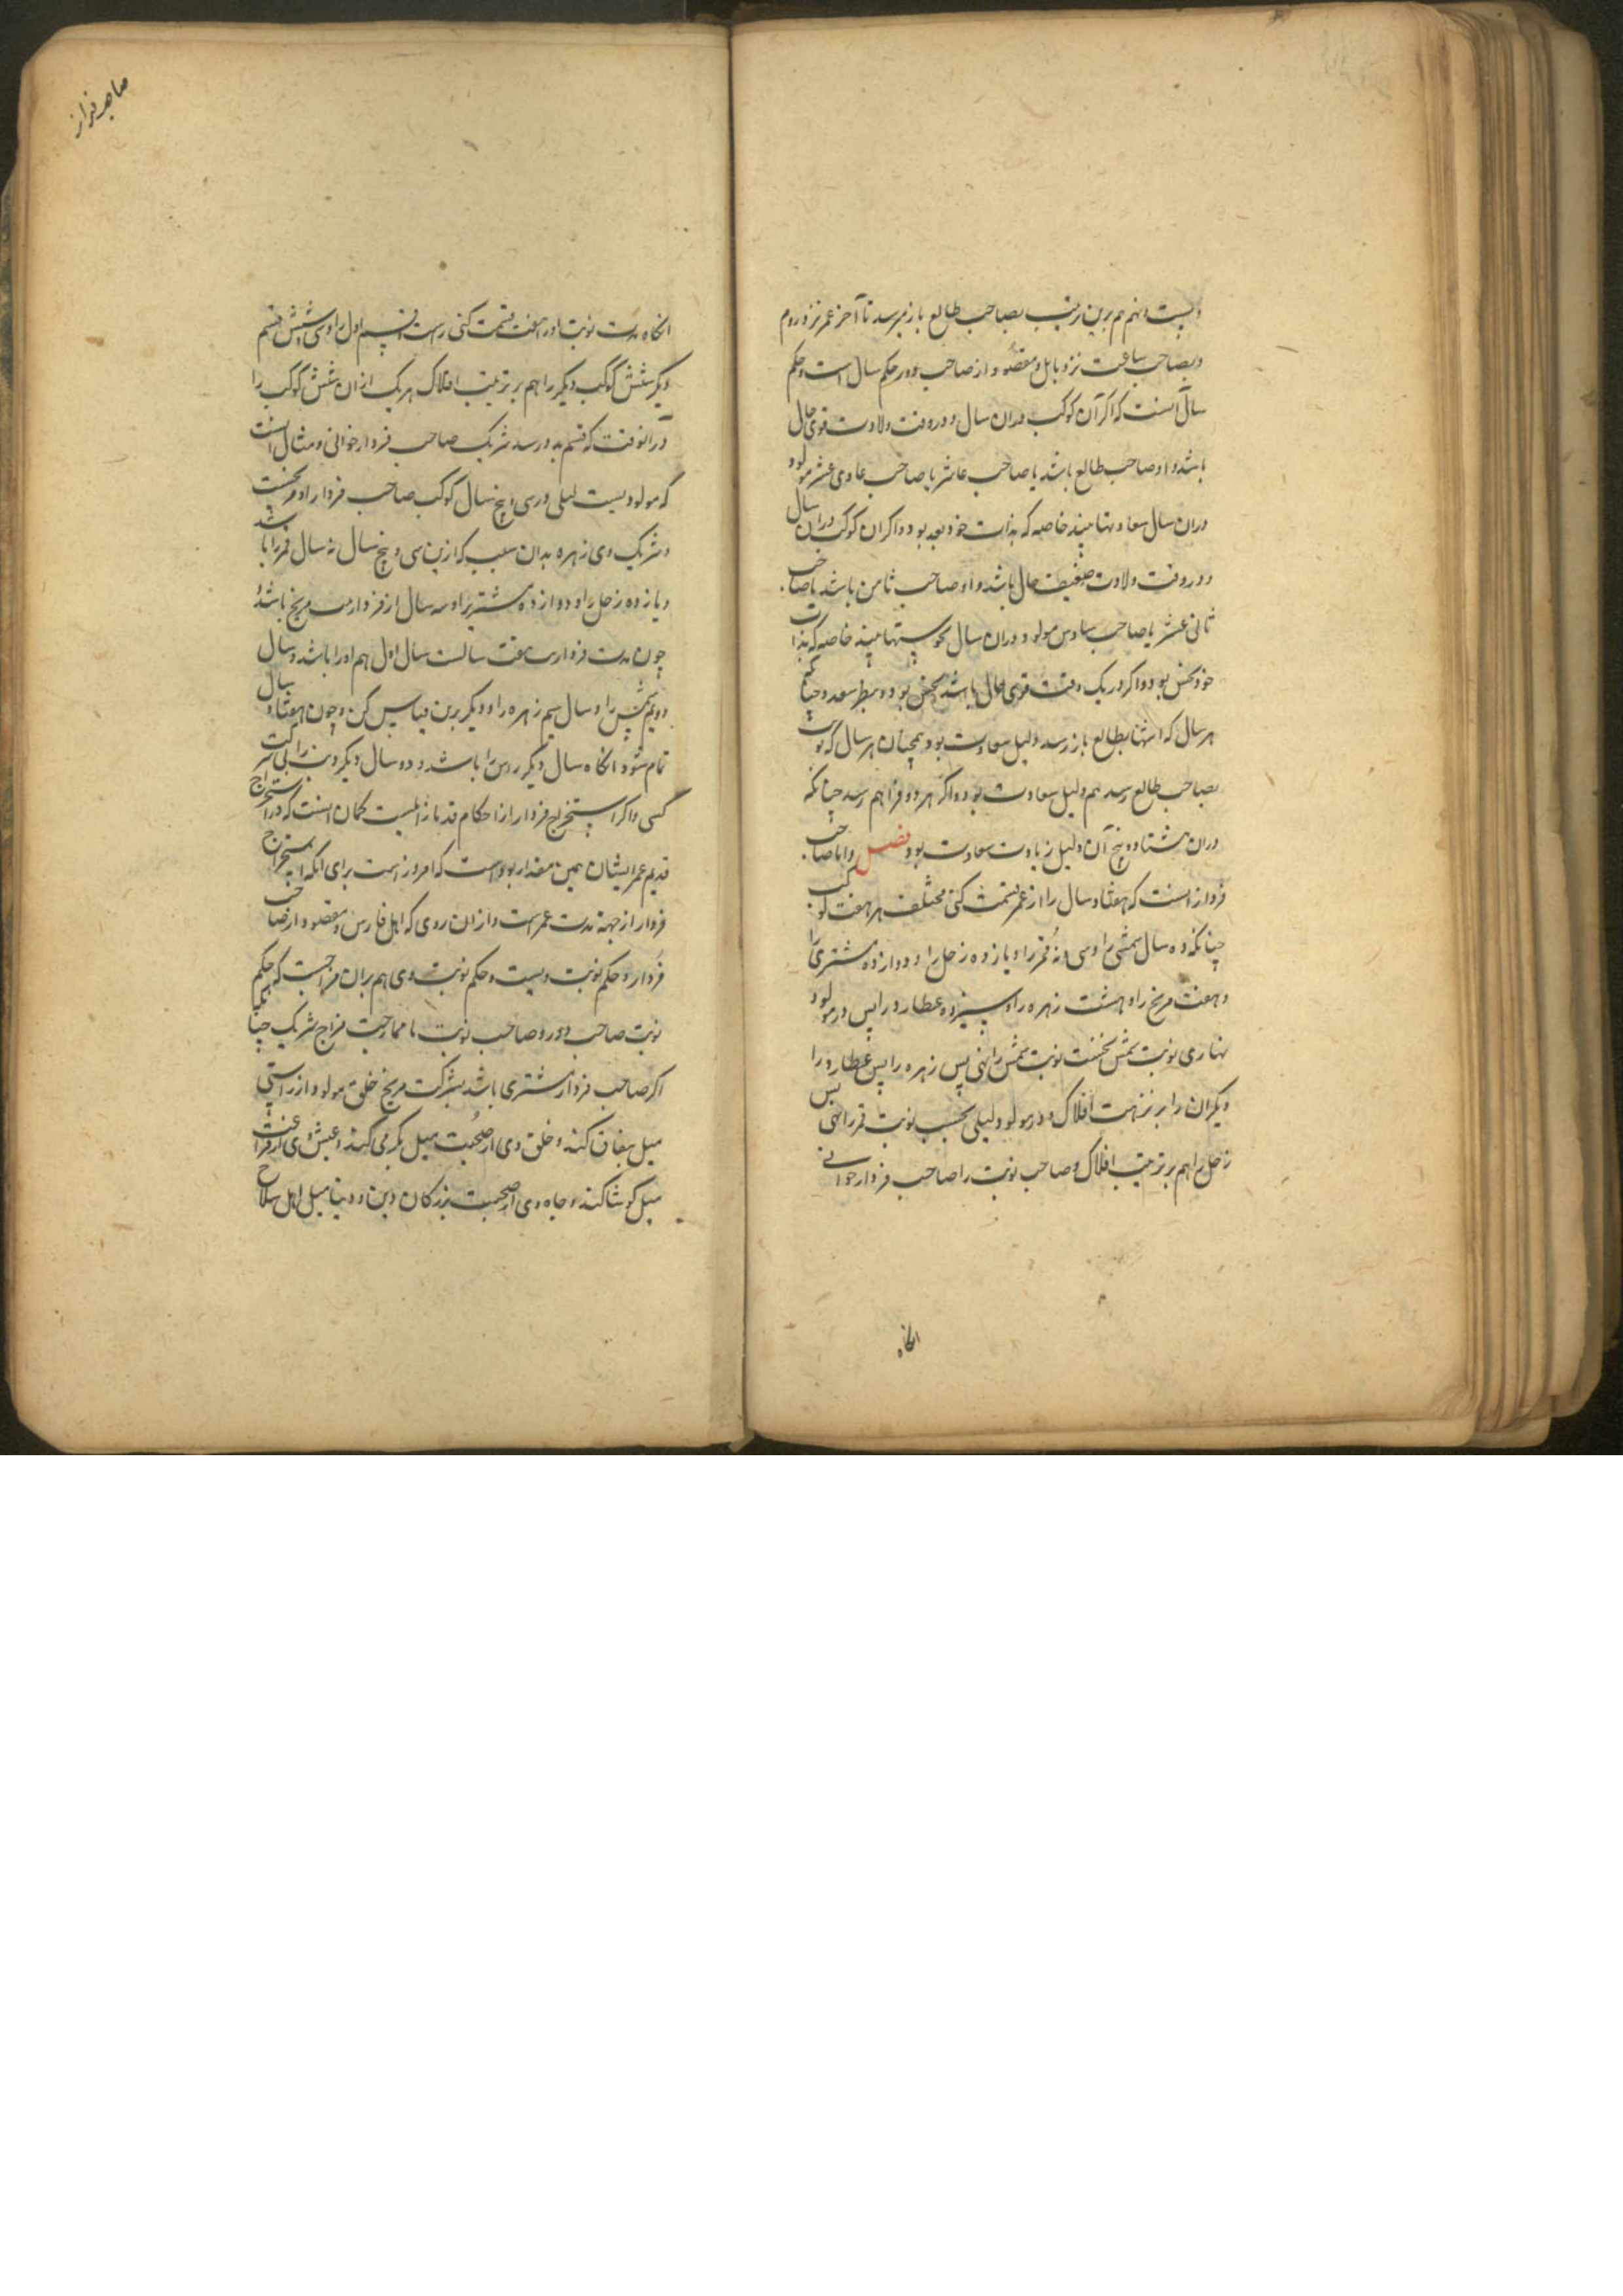 و بیست و نهم هم برین ترتیب بصاحب طالع باز میرسد تا آخر عمر نزد روم
و بصاحب ساعت نزد بابل و مقصود از صاحب دور حکم سال است و حکم
سال آنست که اگر آن کوکب دران سال و در وقت ولادت قوی حال
باشد و او صاحب طالع باشد یا صاحب عاشر یا صاحب حادی عشر مولود
دران سال سعادتها بیند خاصه که بذات خود سعد بود و اگر آن کوکب دران سال
و در وقت ولادت ضعیف حال باشد و او صاحب ثامن باشد یا صاحب
ثانی عشر یا صاحب سادس مولود دران سال نحوستها بیند خاصه که بذات
خود نحس بود و اگر در یک وقت قوی حال باشد نحس بود و سعد و چنانکه
هر سال که انتها بطالع باز رسد دلیل سعادت بود همچنان هر سال که نوبت
بصاحب طالع رسد هم دلیل سعادت بود و اگر هر دو فراهم رسد چنانکه
دران هشتاد و پنج آن دلیل زیادت سعادت بود فصل و اما صاحب
فردار آنست که هفتاد سال را از عمر قسمت کنی مختلف بر هفت کوکب
چنانکه ده سال شمس را و سی و نه قمر را و یازده زحل را و دوازده مشتری را
و هفت مریخ را و هشت زهره را و سیزده عطارد را پس در مولود
نهاری نوبت شمس نخست نوبت شمس را نهی پس زهره را پس عطارد را پس
دیگران را بر ترتیب افلاک و در مولود لیلی نخست نوبت قمر را نهی
زحل را هم بر ترتیب افلاک و صاحب نوبت را صاحب فردار خوانی
انکاه
صاحب فردار
انکاه مدت نوبت او را هفت قسمت کنی راست قسم اول را وی و شش قسم
دیگر شش کوکب دیگر را هم بر ترتیب افلاک هر یک از ان شش کوکب را
در آنوقت که قسم بدو رسد شریک صاحب فردار خوانی و مثال آنست
که مولودیست لیلی و در سی و پنج سال کوکب صاحب فردار او مریخست
و شریک وی زهره بدان سبب که ازین سی و پنج سال نه سال قمر را باشد
و یازده زحل را و دوازده مشتری را و سه سال از فردار مریخ باشد و
چون مدت فردارت هفت سالست سال اول هم او را باشد و سال
دویم شمس را و سال سیم زهره را و دیگر برین قیاس کن و چون هفتاد سال
تمام شود انکاه سه سال دیگر راس را باشد و دو سال دیگر ذنب را بی شرکت
کسی و اگر استخراج فردار از احکام قدما نیست کمان آنست که در استخراج
قدیم عمر ایشان همین مقدار بود است که امروز است برای انکه استخراج
فردار از جهة مدت عمر است و از ان روی که اهل فارس و مقصود از صاحب
فردار و حکم نوبت ویست و حکم نوبت وی هم بران مزاجست که حکم
نوبت صاحب دور و صاحب نوبت با ممازجت مزاج شریک چنانکه
اگر صاحب فردار مشتری باشد بشرکت مریخ خلق مولود از راستی
میل بنفاق کند و خلق وی از صحبت میل بکربمی کند و عیش وی از فراغت
میل کوشا کند و جاه وی از صحبت بزرکان دین و دنیا میل اهل سلاح